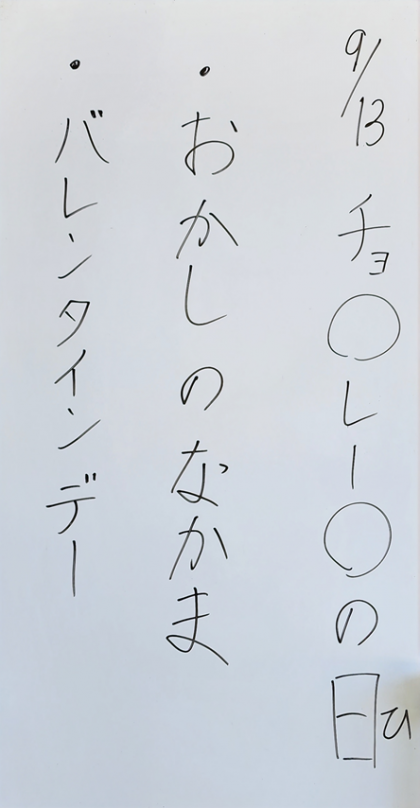 9/13 チョ○レー○の日ひ
・おかしのなかま
・バレンタインデー